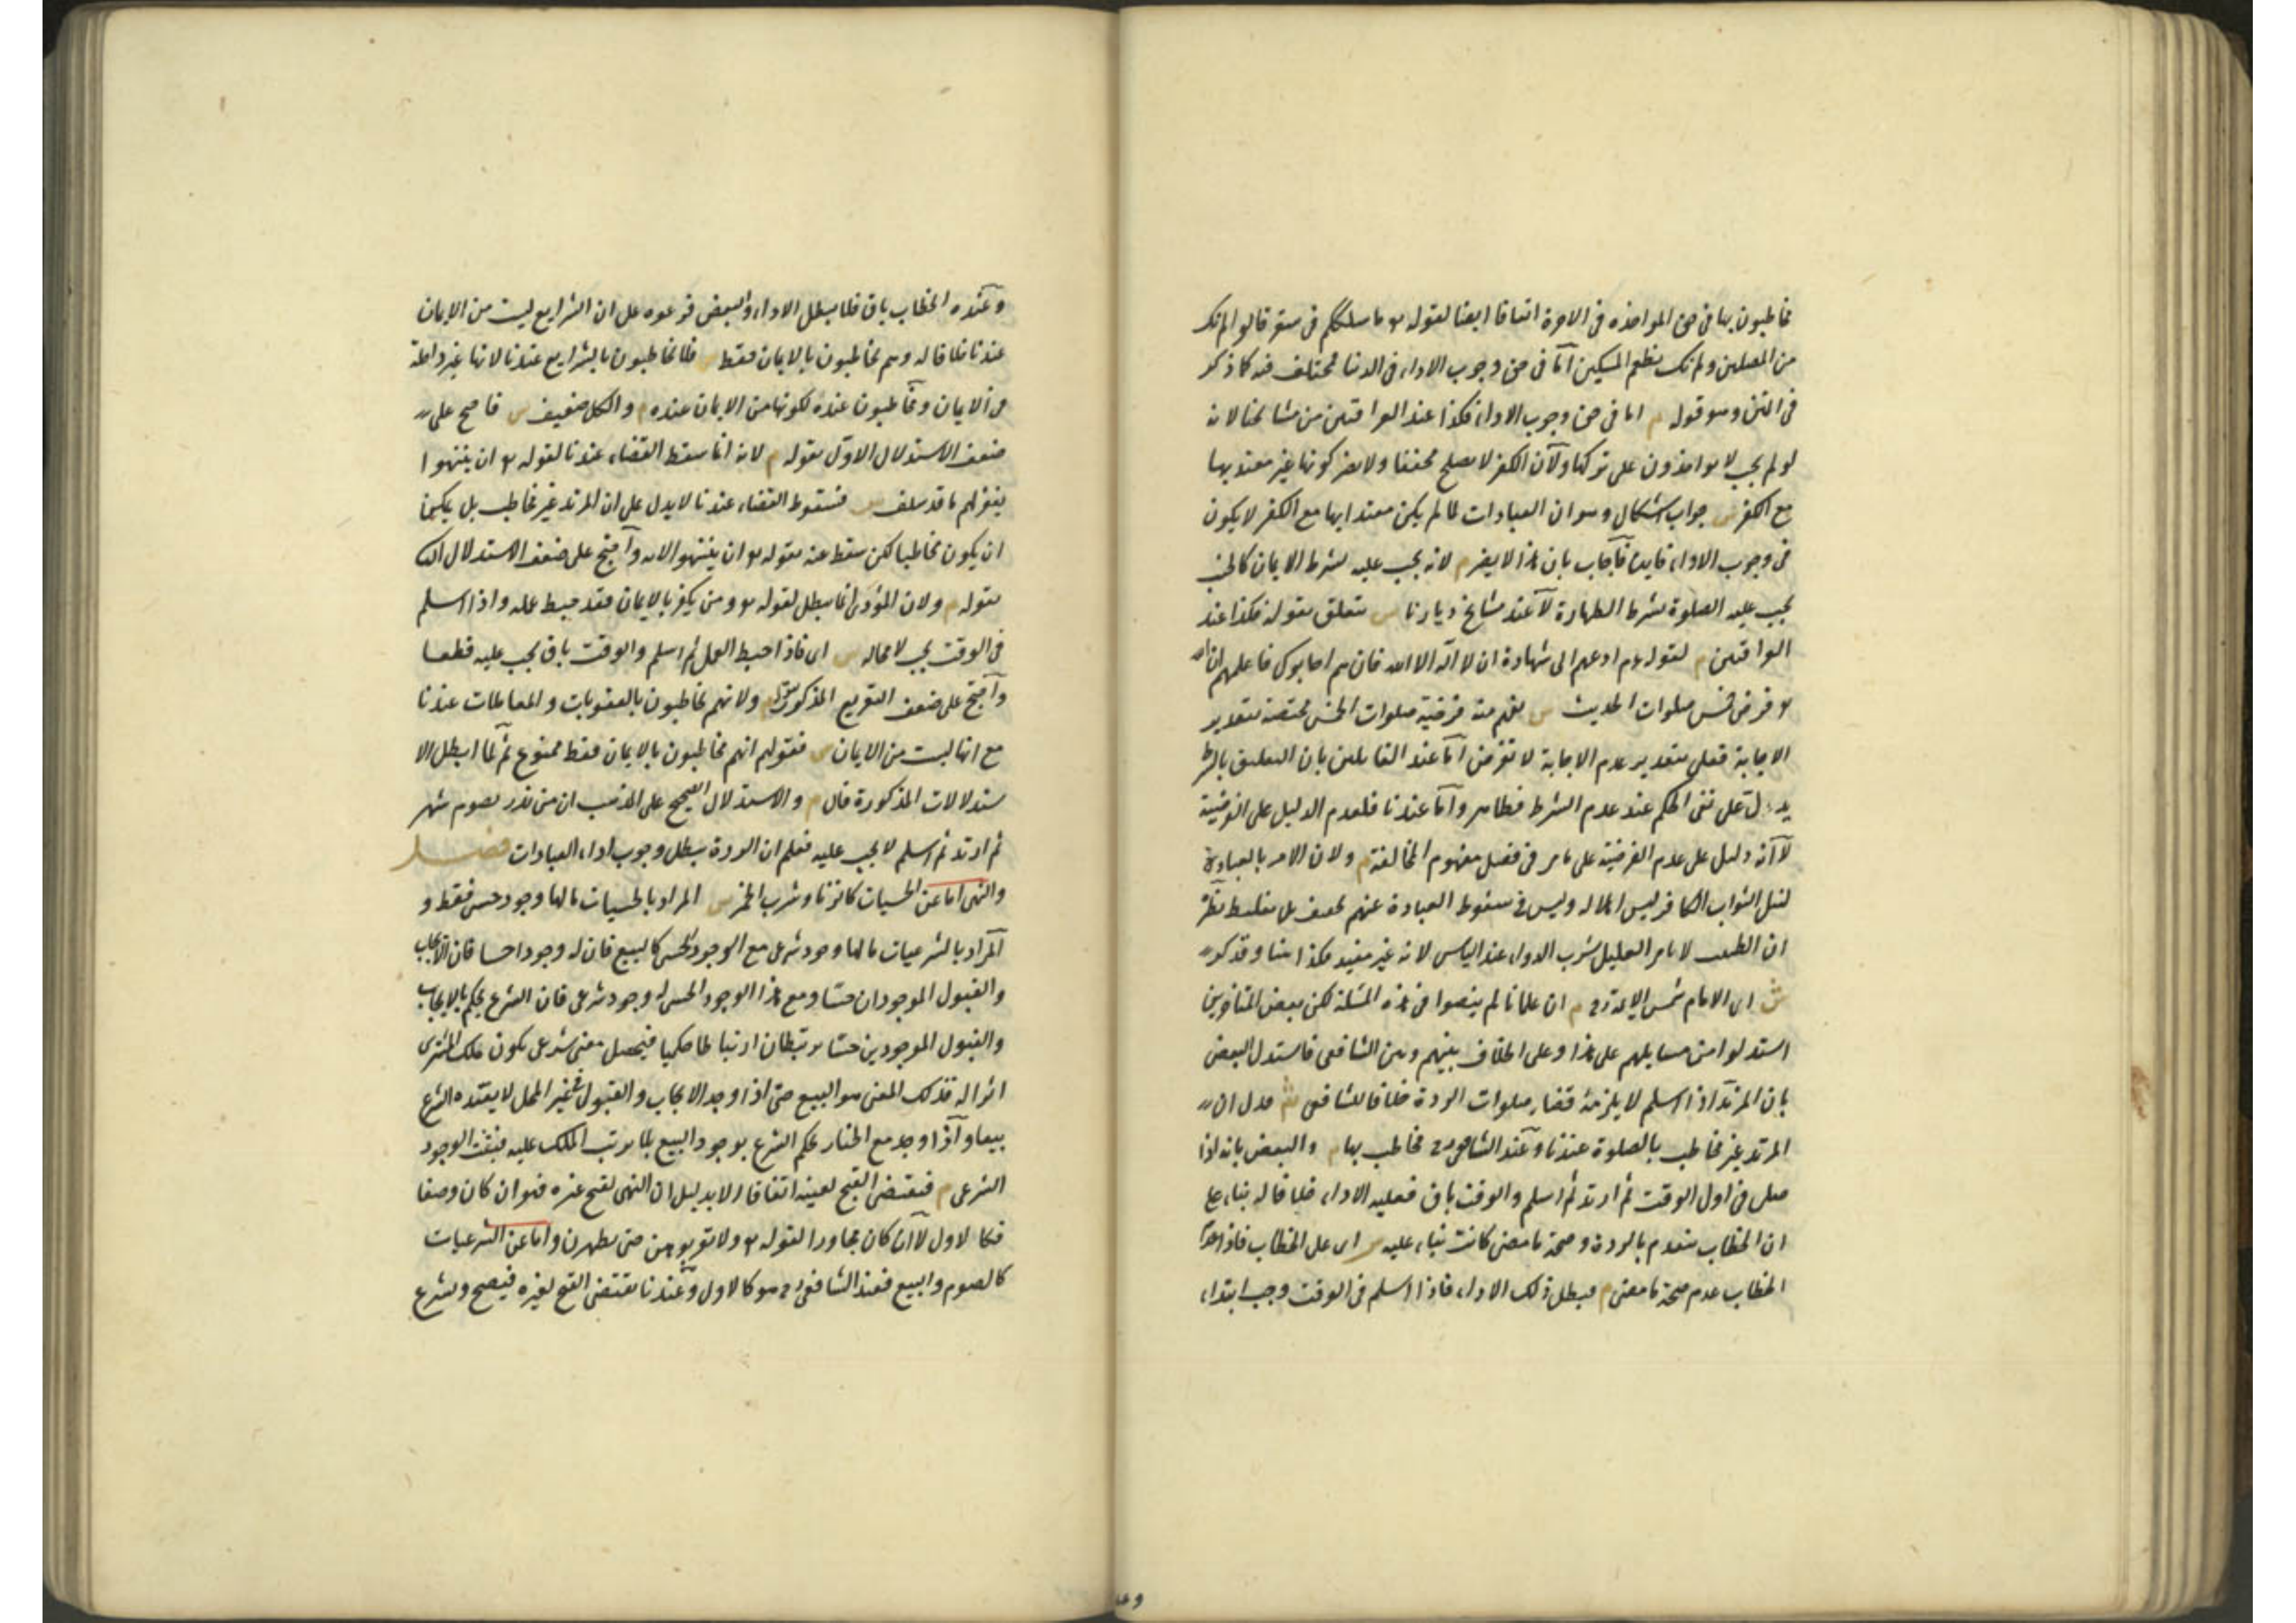 مخاطبون بها فى حق المواخذه فى الاخرة اتفاقا ايضا لقوله تع ما سلككم فى سقر قالوا لم نك
من المصلين ولم نك نطعم المسكين امّا فى حق وجوب الاداء فى الدنيا فمختلف فيه كما ذكر
فى المتن وهو قوله م اما فى حق وجوب الاداء فكذا عند العراقيين من مشايخنا لانه
لو لم يجب لا يواخذون على تركها ولان الكفر لا يصلح مخففا ولا يضر كونها غير معتد بها
مع الكفر ش جواب اشكال وهو ان العبادات لما لم يكن معتدا بها مع الكفر لا يكون
فى وجوب الاداء فايدة فاجاب بان هذا لا يضر م لانه يجب عليه بشرط الايمان كالجنب
يجب عليه الصلوة بشرط الطهارة لا عند مشايخ ديارنا ش متعلق بقوله فكذا عند
العراقيين م لقوله عم ادعهم الى شهادة ان لا اله الا الله فان هم اجابوك فاعلمهم ان الله
تع فرض خمس صلوات الحديث ش يفهم منه فرضية صلوات الخمس مختصة بتقدير
الاجابة فعلى تقدير عدم الاجابة لا تفرض امّا عند القائلين بان التعليق بالشرط
يدل على نفى الحكم عند عدم الشرط فظاهر وامّا عندنا فلعدم الدليل على الفرضية
لا انه دليل على عدم الفرضية على ما مر فى فصل مفهوم المخالفة م ولان الامر بالعبادة
لنيل الثواب الكافر ليس اهلا له وليس فى سقوط العبادة عنهم تخفيف بل تغليظ نظيره
ان الطبيب لا يامر العليل بشرب الدواء عند الياس لانه غير مفيد فكذا هنا وقد ذكر
ش اى الامام شمس الايمة رح م ان علمانا لم ينصوا فى هذه المسئلة لكن بعض المتاخرين
استدلوا من مسايلهم على هذا وعلى الخلاف بينهم وبين الشافعى فاستدل البعض
بان المرتد اذا اسلم لا يلزمه قضاء صلوات الردة خلافا للشافعى ش فدل ان
المرتد غير مخاطب بالصلوة عندنا وعند الشافعى رح مخاطب بها م والبعض بانه اذا
صلى فى اول الوقت ثم ارتد ثم اسلم والوقت باق فعليه الاداء خلافا له بناء على
ان الخطاب ينعدم بالردة وصحة ما مضى كانت بناء عليه ش اى على الخطاب فاذا عدم
الخطاب عدم صحة ما مضى م فبطل ذلك الاداء فاذا اسلم فى الوقت وجب ابتداء
وعنده
وعنده الخطاب باق فلا يبطل الاداء والبعض فرعوه على ان الشرايع ليست من الايمان
عندنا خلافا له وهم مخاطبون بالايمان فقط ش فلا يخاطبون بالشرايع عندنا لانها غير داخلة
فى الايمان ويخاطبون عنده لكونها من الايمان عنده م والكل ضعيف ش فاحتج على
ضعف الاستدلال الاول بقوله م لانه انما سقط القضاء عندنا لقوله تع ان ينتهوا
يغفر لهم ما قد سلف ش فسقوط القضاء عندنا لا يدل على ان المرتد غير مخاطب بل يمكن
ان يكون مخاطبا لكن سقط عنه بقوله تع ان ينتهوا الاية واحتج على ضعف الاستدلال الثانى
بقوله م ولان المؤدى انما بطل لقوله تع ومن يكفر بالايمان فقد حبط عمله واذا اسلم
فى الوقت يجب لا محاله ش اى فاذا احبط العمل ثم اسلم والوقت باق يجب عليه قطعا
واحتج على ضعف التفريع المذكور بقوله م ولانهم مخاطبون بالعقوبات والمعاملات عندنا
مع انها ليست من الايمان ش فقولهم انهم مخاطبون بالايمان فقط ممنوع ثم لما ابطل الا
ستدلالات المذكورة قال م والاستدلال الصحيح على المذهب ان من نذر بصوم شهر
ثم ارتد ثم اسلم لا يجب عليه فعلم ان الردة تبطل وجوب اداء العبادات فصل
والنهى اما عن الحسيات كالزنا وشرب الخمر ش المراد بالحسيات ما لها وجود حسى فقط و
المراد بالشرعيات ما لها وجود شرعى مع الوجود الحسى كالبيع فان له وجودا حسا فان الايجاب
والقبول الموجودان حسّا ومع هذا الوجود الحسى له وجود شرعى فان الشرع يحكم بالايجاب
والقبول الموجودين حسّا يرتبطان ارتباطا حكميا فيحصل معنى شرعى يكون ملك المشترى
اثرا له فذلك المعنى هو البيع حتى اذا وجد الايجاب والقبول فى غير المحل لا يعتده الشرع
بيعا واذا وجد مع الخيار يحكم الشرع بوجود البيع بلا ترتب الملك عليه فيثبت الوجود
الشرعى م فيقتضى القبح لعينه اتفاقا الا بدليل ان النهى لقبح غيره فهو ان كان وصفا
فكالاول لا ان كان مجاورا لقوله تع ولا تقربوهن حتى يطهرن واما عن الشرعيات
كالصوم والبيع فعند الشافعى رح هو كالاول وعندنا يقتضى القبح لغيره فيصح ويشرع